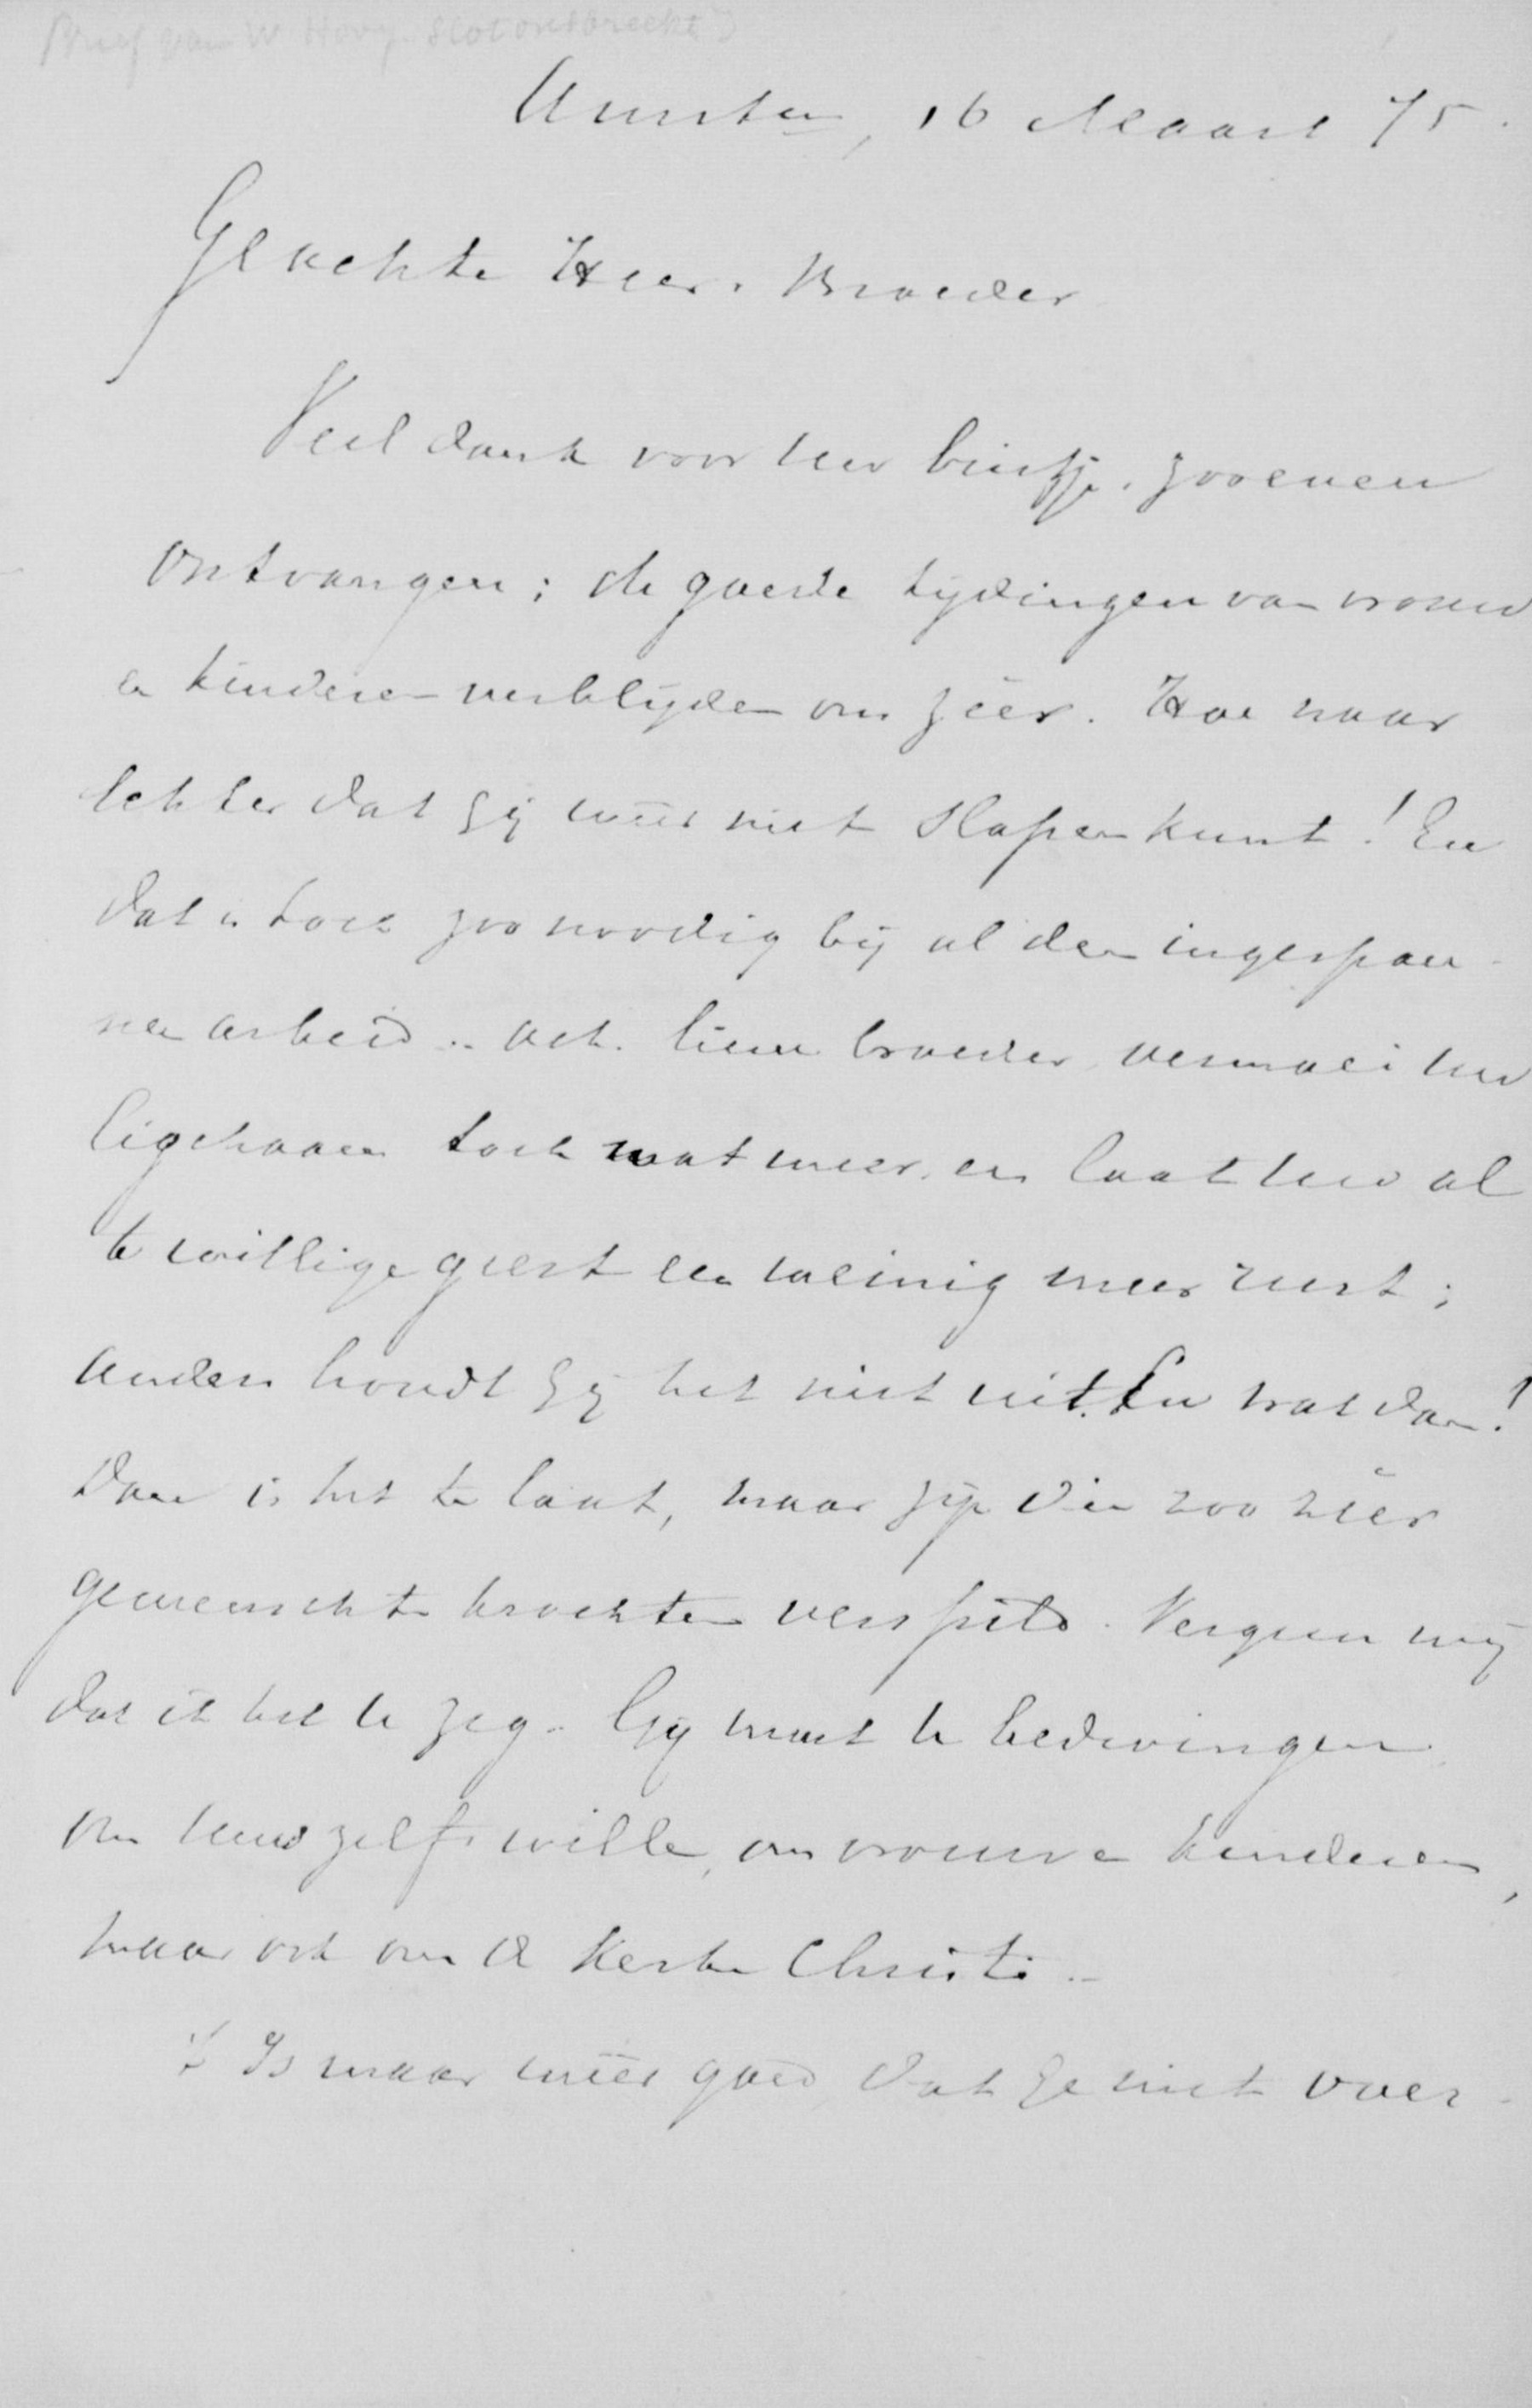 Brief van W Hovy. Slot ontbreekt)
Amstm, 16 Maart 75.
Geachte Heer. Broeder
Veel dank voor uw briefje. zooeven
ontvangen; de goede tijdingen van vrouw
en kinderen verblijden ons zéér. Hoe naar
echter dat gij wéér niet slapen kunt! En
dat is toch zoo noodig bij al den ingespan-
nen arbeid.. Ach. lieve broeder vermoei uw
ligchaam toch wat meer. en laat uw al
te willige geest een weinig meer rust;
anders houdt gij het niet uit. En wat dan!
Dan is het te laat, maar zijn die zoo zéér
gewenschte krachten verspild. Vergun mij
dat ik het u zeg.. Gij moet u bedwingen
om uws zelfs wille, om vrouw en kinderen,
maar ook om de Kerke Christi..
't Is maar wéér goed dat ge niet over-